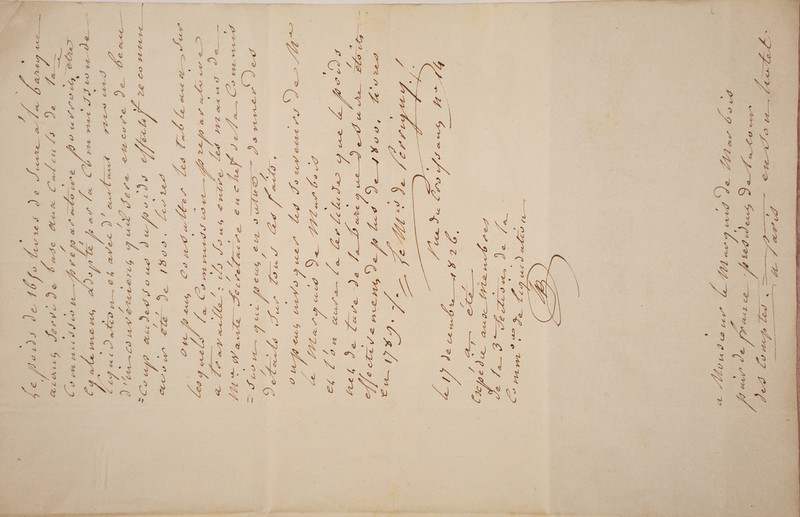 Le poids de 1650 livres de sucre a la barique
aiant servi de base aux calculs de la
Commission preparatoire pourroit etre
egalement adopté par la Commission de
liquidation et avec d'autant moins
d'inconvenient qu'il sera encore de beau=
=coup audessous du poids effectif reconnu
avoir été de 1800 livres
on peut consulter les tableaux sur
lesquels la Commission preparatoire
a travaillé; ils sont entre les mains de
Mr secretaire en chef de la Commis
=sion qui peut en outre donner des
details sur tous les faits.
on peut invoquer les souvenirs de Mr
le Marquis de Marbois
et l'on aura la certitude que le poids
net de tare de la barique de sucre étoit
effectivement de plus de 1800 livres
en 1789 ./.
le Mis de Perrigny
rue du Croissant no 14
le 17 decembre 1826.
a été
Expedié aux Membres
de la 3e Section de la
Common de liquidation
a Monsieur le Marquis de Marbois
pair de france president de la Cour
des Comptes. en son hotel.
a Paris